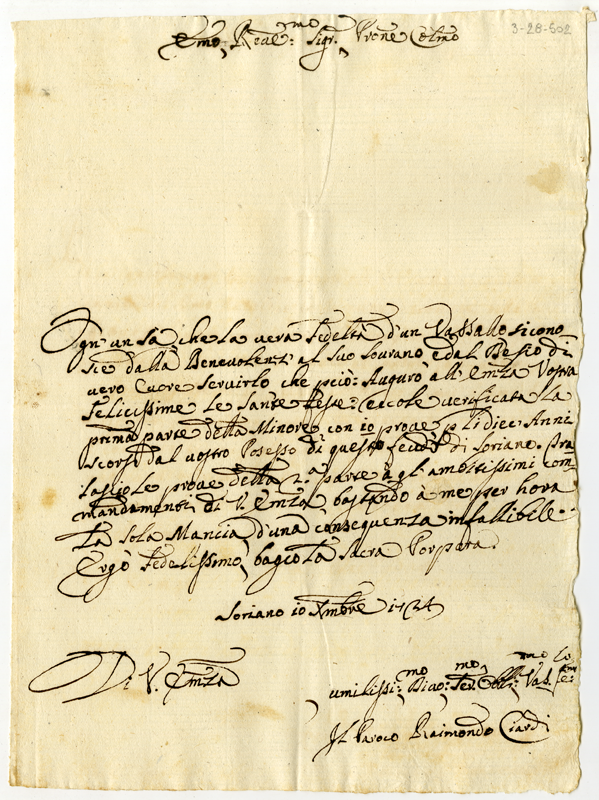 3-28-502
Emo, Reale: Sigr. Prone Colmo
mo
Ogn'un sà che la vera Fedeltà d'un Vassallo si cono
sce dalla Benevolenz' al suo Sourano e dal Desio di
vero Cuore servirlo che pciò: Auguro all' Emza Vostra
Felicissime le Sante Feste: eccole verificata la
prima parte della Minore con io prove p li dieci Anni
scorsi dal vostro Possesso di questo feudo di Soriano. Tra
lascio le prove della 2.a parte à gl' ambitissimi com
mandamenti di V. Emza bastando à me per hora
La sola Mancia d'una consequenza infallibile.
Ergò Fedelissimo, bagio la Sacra Porpora.
Soriano 10 Xmbre 1724
Di V. Emza
umilissi:mo Divo:mo Ser. Obl:mo Vas.
Il Paroco Raimondo Ciardi